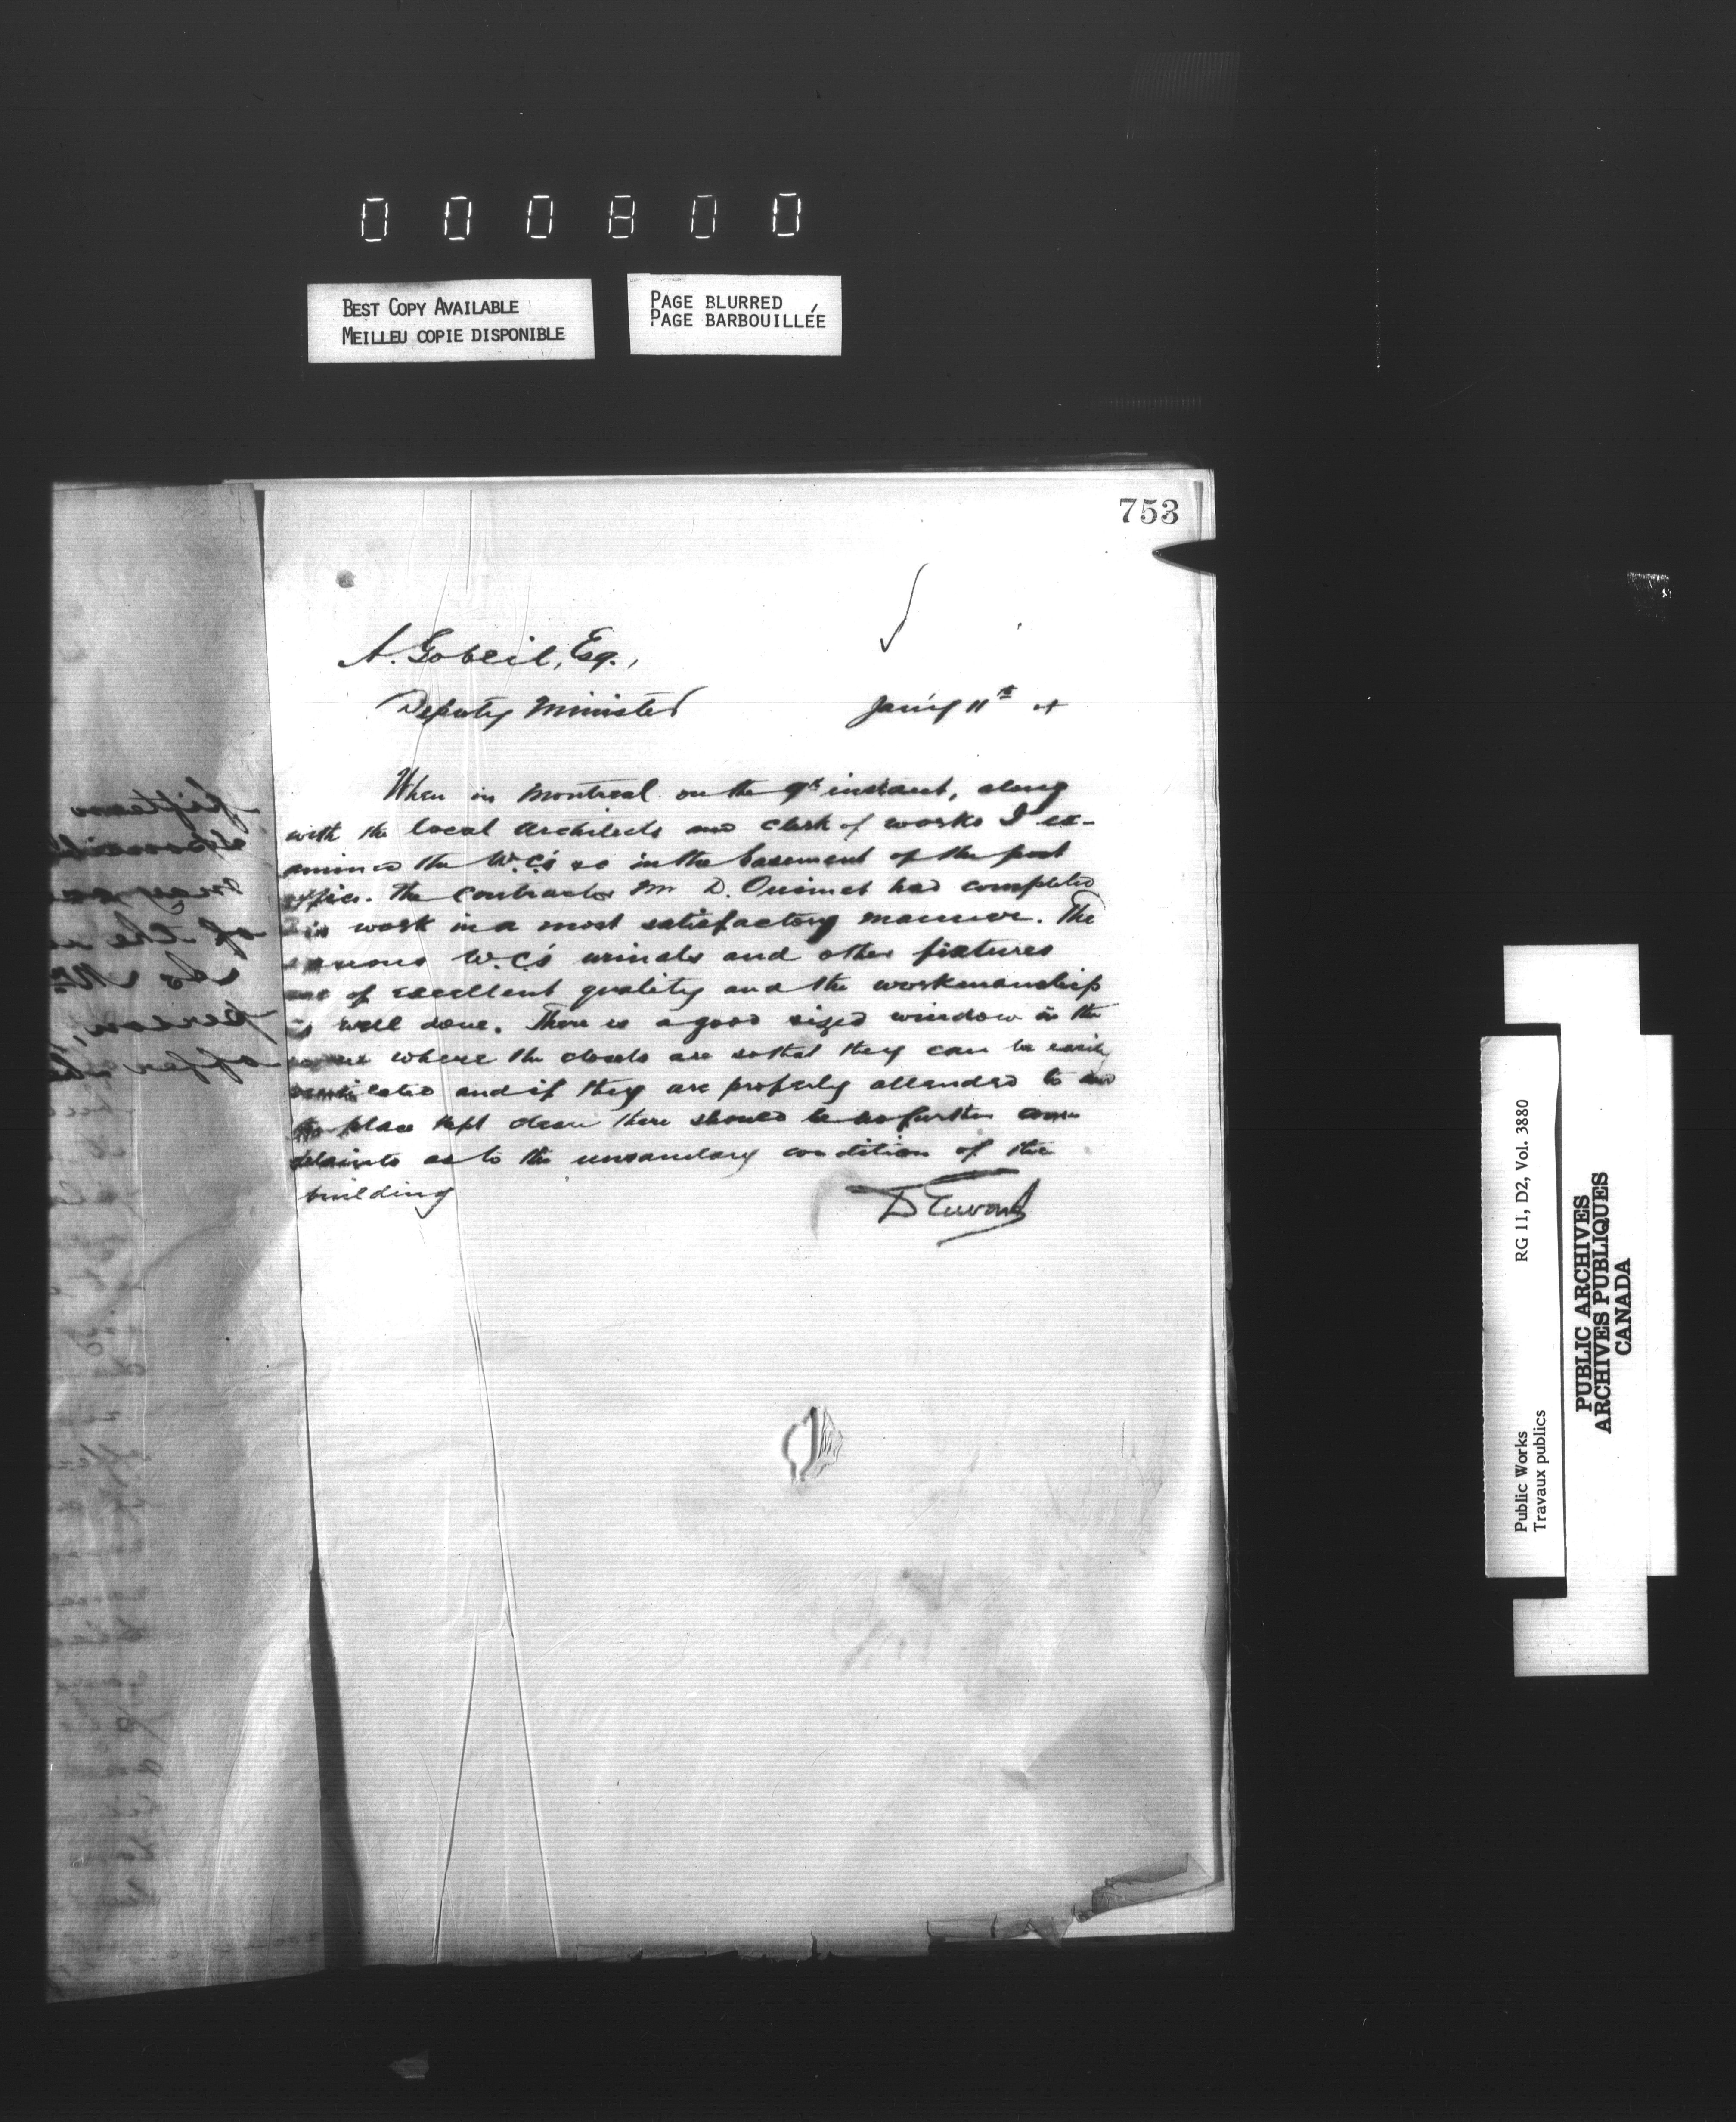 000800
BEST COPY AVAILABLE
MEILLEU COPIE DISPONIBLE
PAGE BLURRED
PAGE BARBOUILLÉE
753
A. Gobeil, Esq.,
Deputy Minister
Jan'y 11th
When in Montreal on the 9th instant, along
with the local Architects and clerk of works I ex-
amined the W.C's in the basement of the post
office. The Contractor Mr D. Ouimet had completed
his work in a most satisfactory manner. The
various W.C's urinals and other fixtures
are of excellent quality and the workmanship
is well done. There is a good sized window in the
where the closets are so that they can be easily
ventilated and if they are properly attended to and
the place kept clean there should be no further com
plaints as to the unsanitary condition of the
building
D Ewart
fifteen
may
of the
to Mr
person,
offer
Public Works
Travaux publics
RG 11, D2, Vol. 3880
PUBLIC ARCHIVES
ARCHIVES PUBLIQUES
CANADA